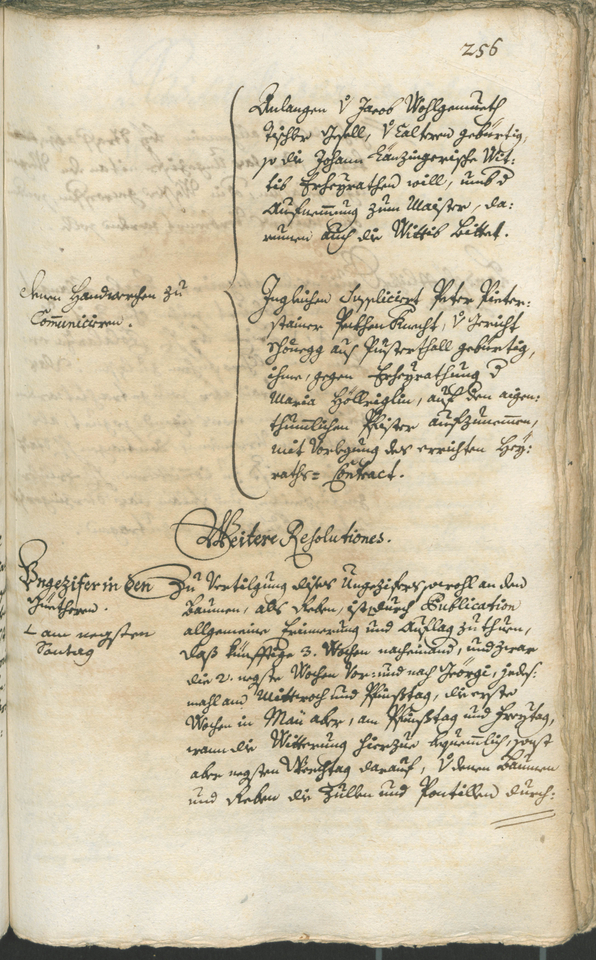 256
Anlangen V Jacob Wohlgemueth
Tischler Gesell, V Caltern gebürtig,
so die Johann Känzingerische Wit:
tib Erheyrathen will, umb d
Aufnemmung zum Maister, da:
rumen auch die Wittib bittet.
denen Handwerchen zu
Communicieren.
Ingleichen Suppliciert Peter Pieter:
stainer Pekhen Knecht, V Gericht
Schönegg aus Pusterthall gebürtig,
ihme, gegen Erheyrathung d
Maria Höllriglin, auf den aigen:
thumblichen Pfister aufzunemmen,
mit Vorlegung des errichten Hey:
raths= Contract.
Weitere Resolutiones.
Ungezifer in den
Güethern.
am negsten
Sontag
Zu Vertilgung dises Ungezifers sowohl an den
Baumen, als Reben, ist durch Publication
allgemeine Erinerung und Auflag zuthuen,
daß künfftige 3. Wochen nacheinand, und zwar
die 2. negste Wochen Vor: und nach Geörgi, jedes:
mahl am Mittwoch und Pfinztag, die erste
Wochen in Maii aber, am Pfinztag und Freytag,
wann die Witterung hierzue bequemmlich, sonst
aber negsten Werchtag darauf, V denen Baumen
und Reben die Züllen und Pontillen durch: